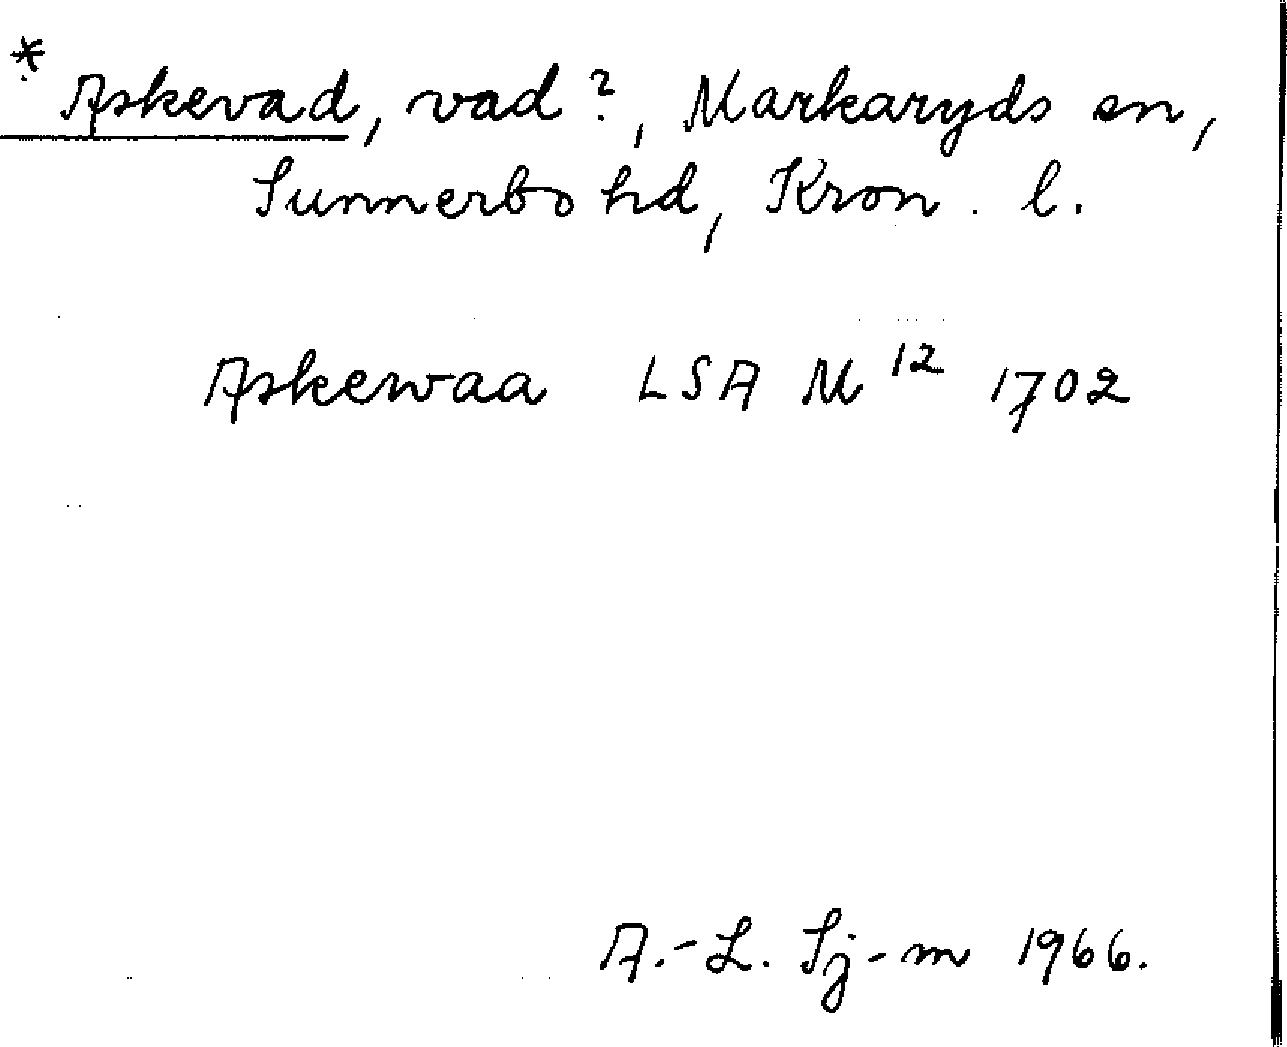 * Askevad, vad?, Markaryds sn,
Sunnerbo hd, Kron. l.
Askewaa LSA M 12 1702
A.-L. Sj-m 1966.